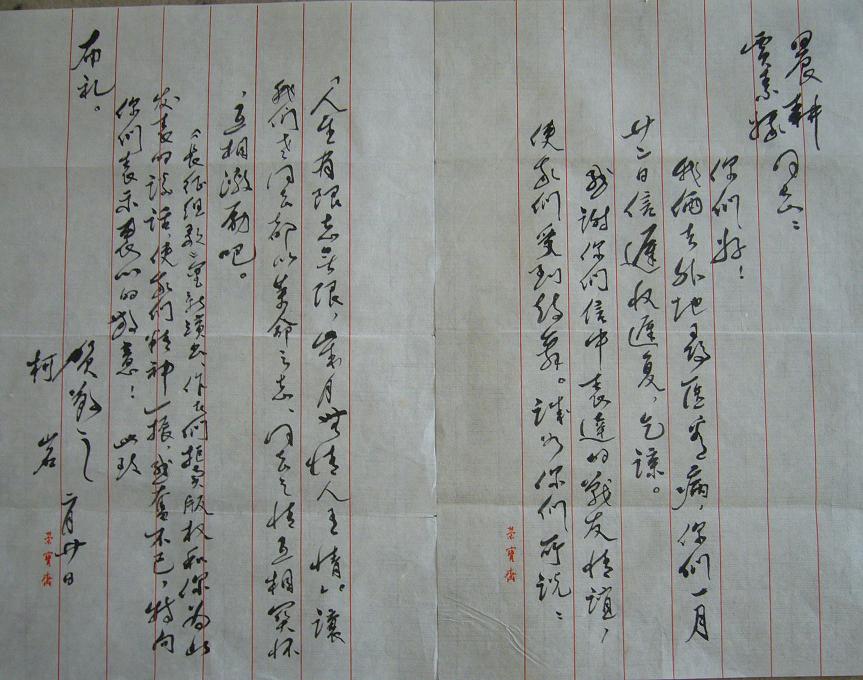 晨耕
贾素娥同志：
你们好！
我俩去外地寻医看病，你们一月
廿二日信迟收迟复，乞谅。
感谢你们信中表达的战友情谊，
使我们受到鼓舞。诚如你们所说：
“人生有限志无限，岁月无情人有情”。让
我们老同志都以革命之志、同志之情互相关怀
、互相激励吧。
《长征组歌》重新演出，作者们拒卖版权和你为此
发表的谈话，使我们精神一振，感奋不已，特向
你们表示衷心的敬意！此致
布礼。
贺敬之
柯岩
二月廿日
荣宝斋
荣宝斋